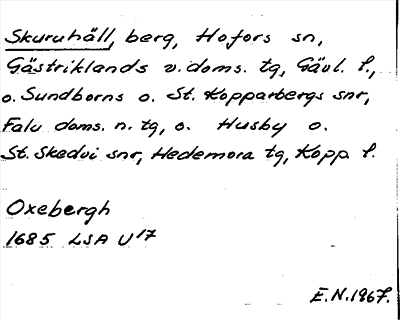 Skuruhäll, berg, Hofors sn,
Gästriklands v. doms. tg, Gävl. l.,
o. Sundborns o. St. Kopparbergs snr,
Falu doms. n. tg, o. Husby o.
St. Skedvi snr, Hedemora tg, Kopp. l.
Oxebergh
1685 LSA U17
E.N. 1967.